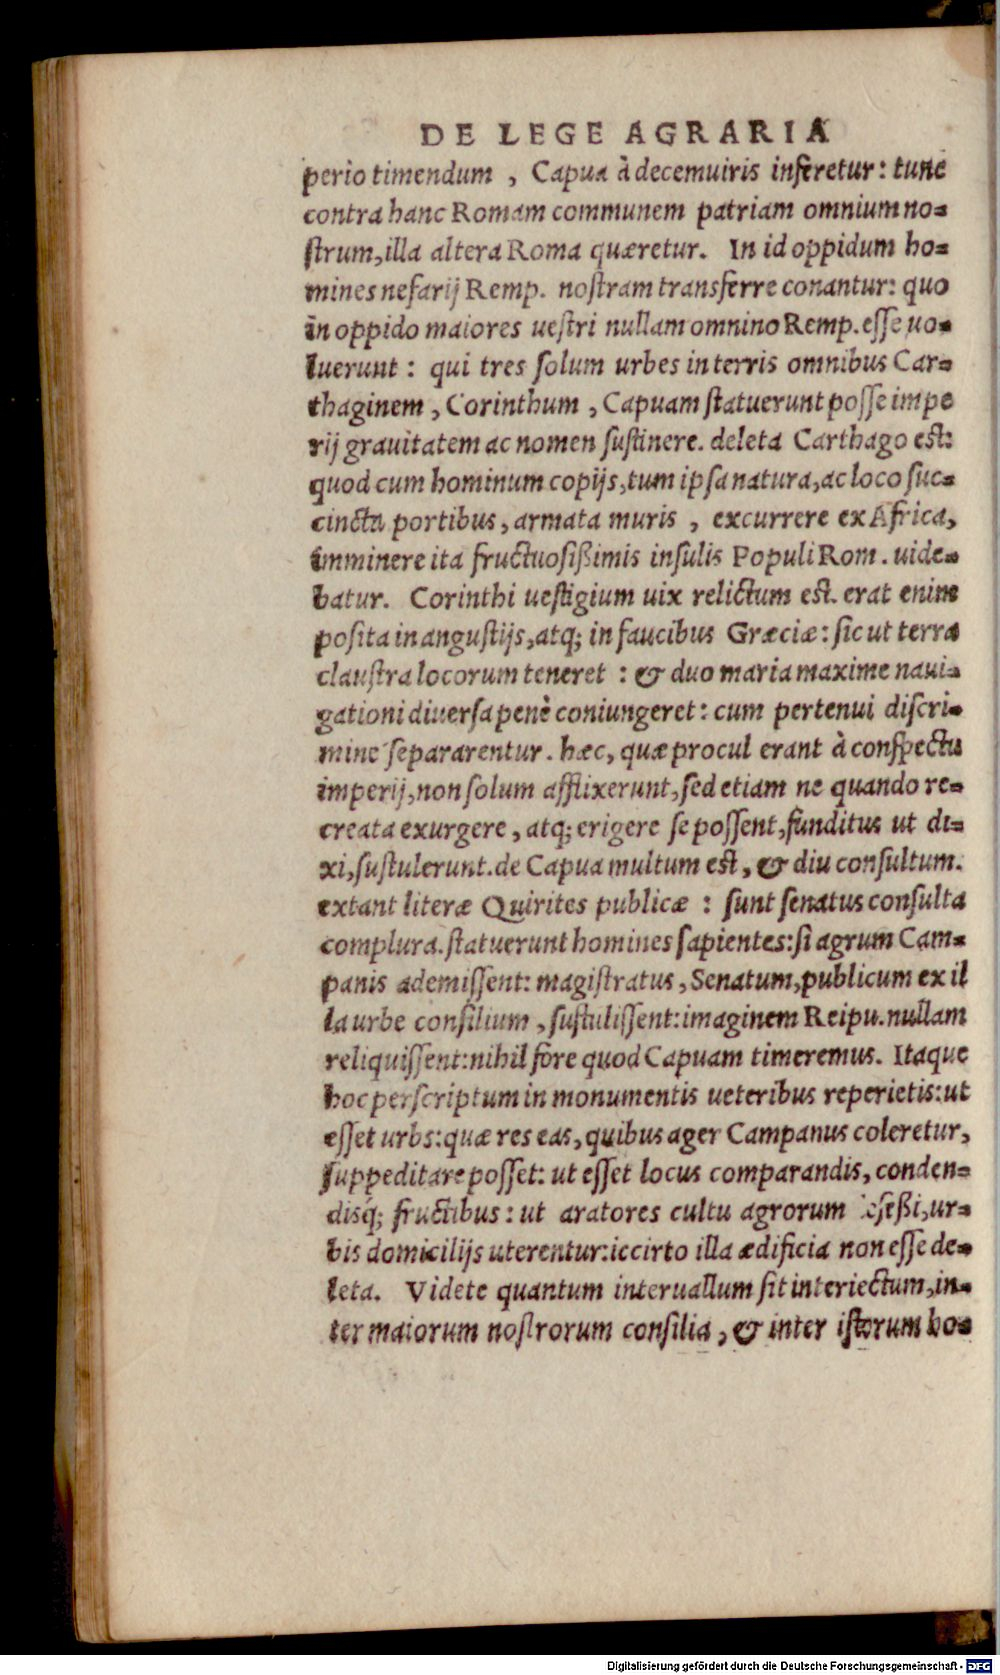 DE LEGE AGRARIA
perio timendum , Capua à decemuiris inferetur: tunc
contra hanc Romam communem patriam omnium no=
ſtrum, illa altera Roma quæretur. In id oppidum ho=
mines nefarij Remp. noſtram transferre conantur: quo
in oppido maiores ueſtri nullam omnino Remp. eſſe uo=
luerunt : qui tres ſolum urbes in terris omnibus Car=
thaginem , Corinthum , Capuam ſtatuerunt poſſe impe
rij grauitatem ac nomen ſuſtinere. deleta Carthago est:
quod cum hominum copijs, tum ipſa natura, ac loco ſuc=
cincta portibus, armata muris , excurrere ex Africa,
imminere ita fructuoſißimis inſulis Populi Rom. uide=
batur. Corinthi ueſtigium uix relictum est. erat enim
poſita in anguſtijs, atq; in faucibus Græciæ: ſic ut terra
clauſtra locorum teneret : & duo maria maxime naui=
gationi diuerſa penè coniungeret: cum pertenui diſcri=
mine ſepararentur. hæc, quæ procul erant à conſpectu
imperij, non ſolum afflixerunt, ſed etiam ne quando re=
creata exurgere, atq; erigere ſe poſſent, funditus ut di=
xi, ſuſtulerunt. de Capua multum est, & diu conſultum.
extant literæ Quirites publicæ : ſunt ſenatus conſulta
complura. ſtatuerunt homines ſapientes: ſi agrum Cam=
panis ademiſſent: magiſtratus, Senatum, publicum ex il
la urbe conſilium , ſuſtuliſſent: imaginem Reipu. nullam
reliquiſſent: nihil fore quod Capuam timeremus. Itaque
hoc perſcriptum in monumentis ueteribus reperietis: ut
eſſet urbs: quæ res eas, quibus ager Campanus coleretur,
ſuppeditare poſſet: ut eſſet locus comparandis, conden=
disq́; fructibus: ut aratores cultu agrorum defeßi, ur=
bis domicilijs uterentur: iccirto illa ædificia non eſſe de=
leta. Videte quantum interuallum ſit interiectum, in=
ter maiorum noſtrorum conſilia , & inter iſtorum ho=
Digitalisierung gefördert durch die Deutsche Forschungsgemeinschaft - DFG